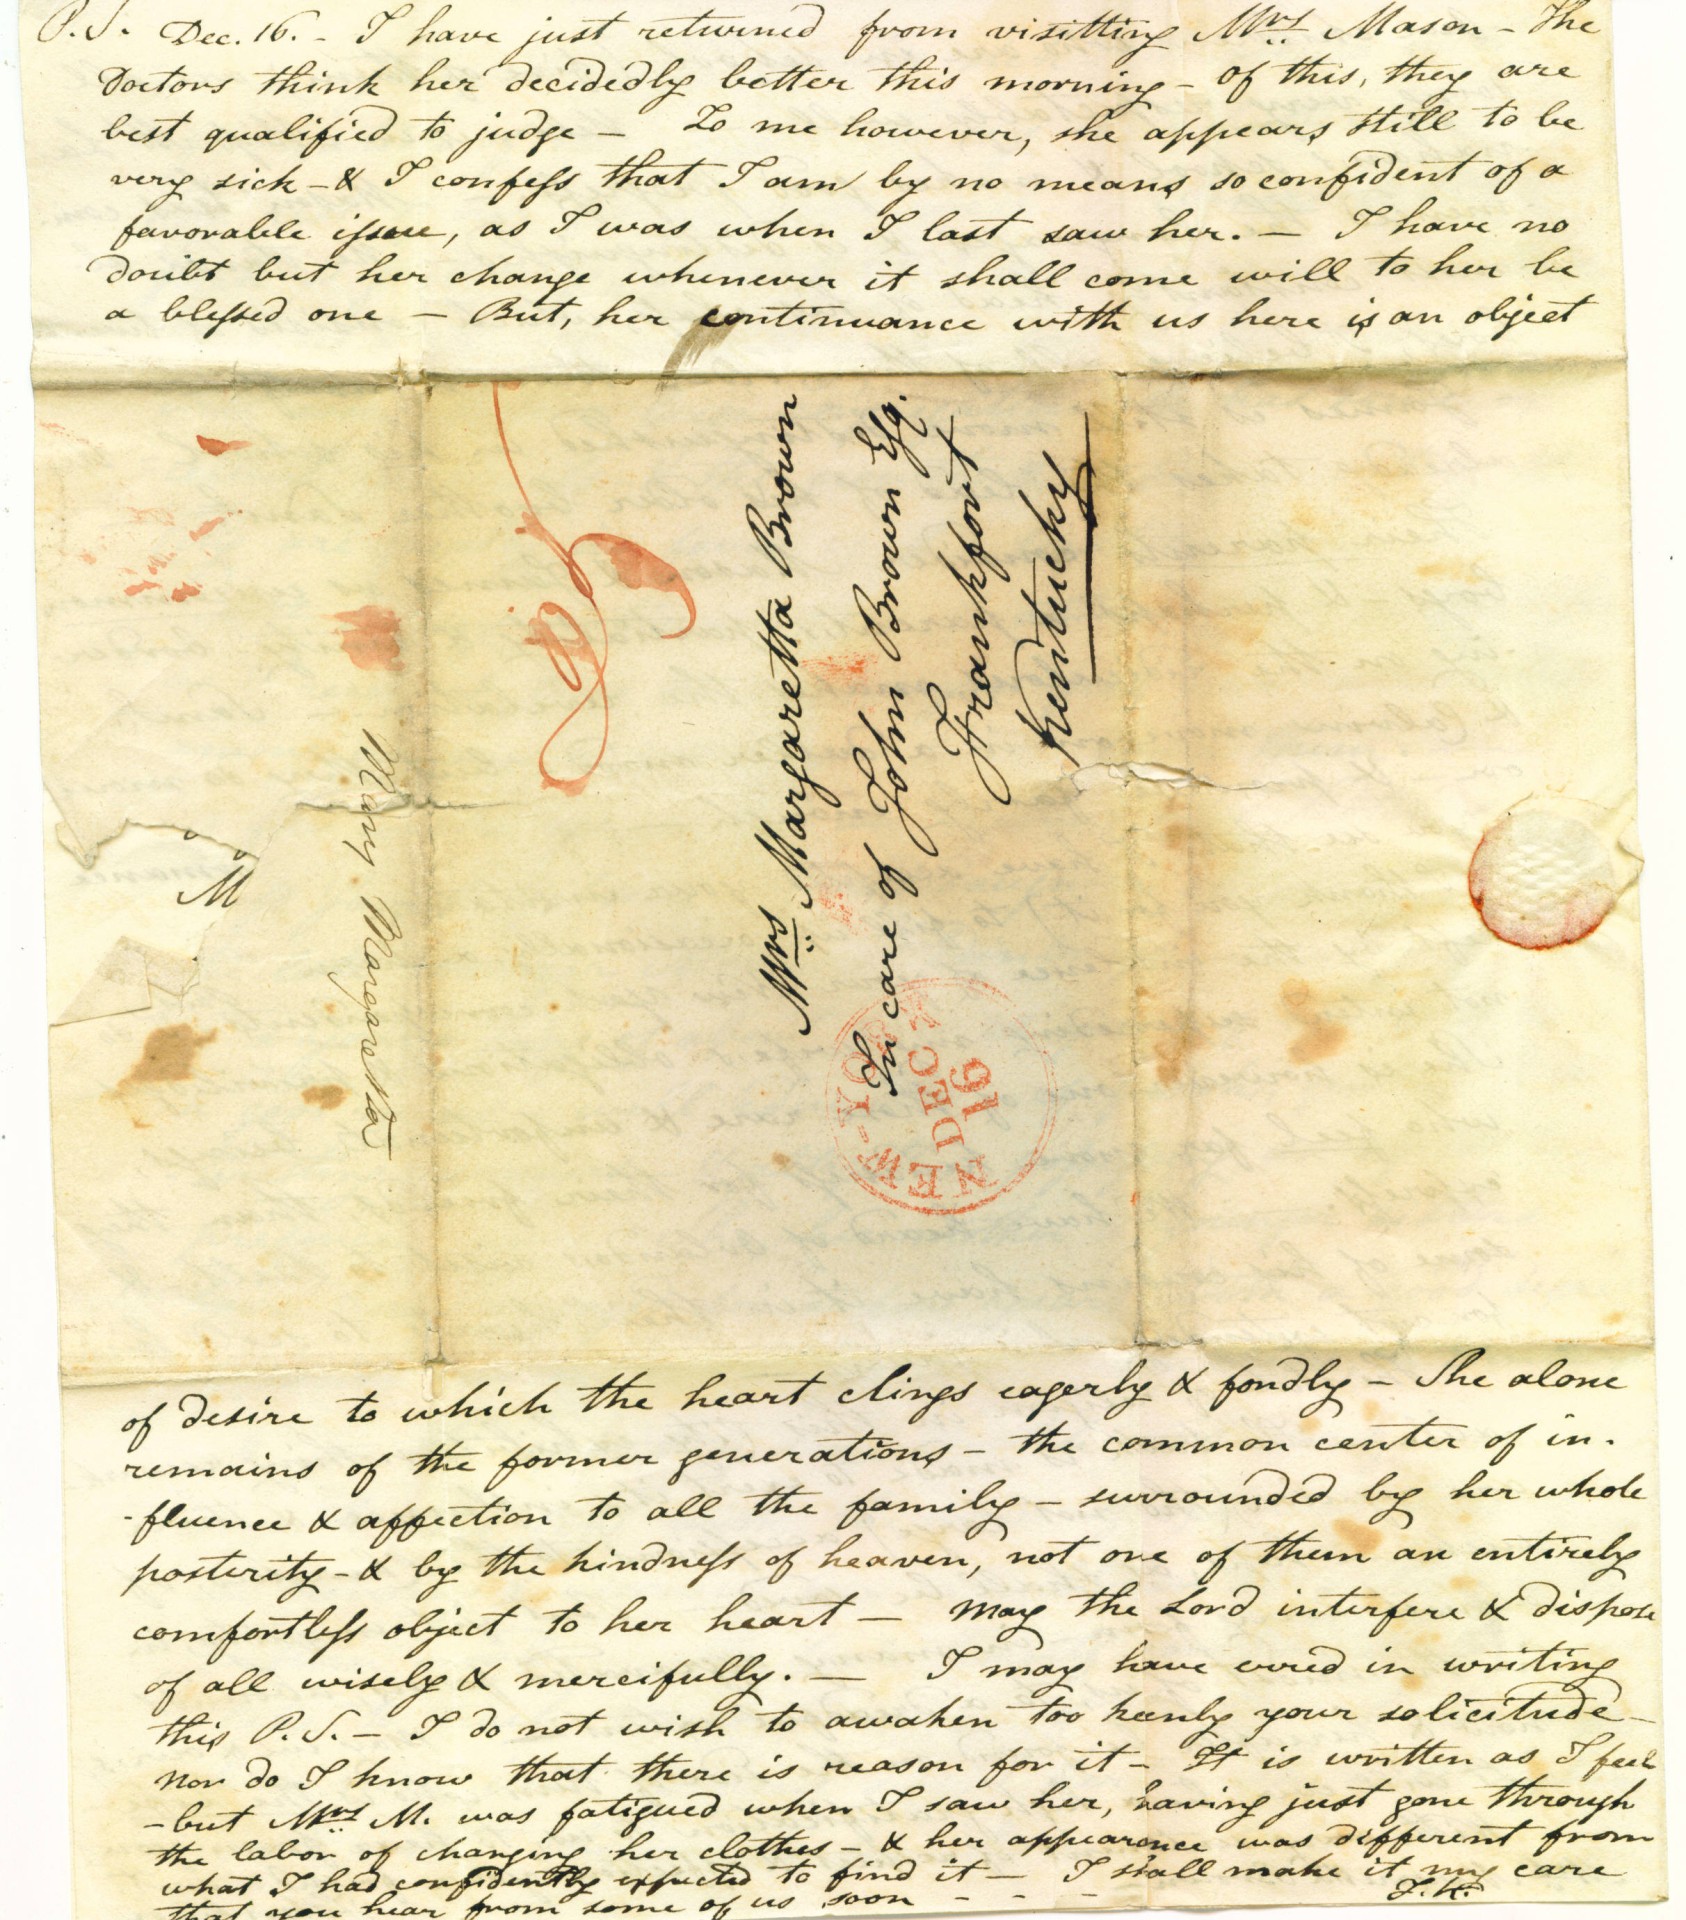 P.S. Dec. 16. - I have just returned from visitting Mrs. Mason - The
Doctors think her decidedly better this morning - of this, they are
best qualified to judge - To me however, she appears still to be
very sick - & I confess that I am by no means so confident of a
favorable issue, as I was when I last saw her. - I have no
doubt but her change whenever it shall come will to her be
a blessed one - But, her continuance with us here is an object
Mrs. Margaretta Brown
In care of John Brown Esq.
Frankfort
Kentucky
NEW-YORK
DEC
16
M
Mary Margaretta
of desire to which the heart clings eagerly & fondly - She alone
remains of the former generations - the common center of in-
-fluence & affection to all the family - surrounded by her whole
posterity - & by the kindness of heaven, not one of them an entirely
comfortless object to her heart - May the Lord interfere & dispose
of all wisely & mercifully. - I may have erred in writing
this P.S. - I do not wish to awaken too keenly your solicitude -
nor do I know that there is reason for it - It is written as I feel
- but Mrs. M. was fatigued when I saw her, having just gone through
the labor of changing her clothes - & her appearance was different from
what I had confidently expected to find it - I shall make it my care
that you hear from some of us soon - - -